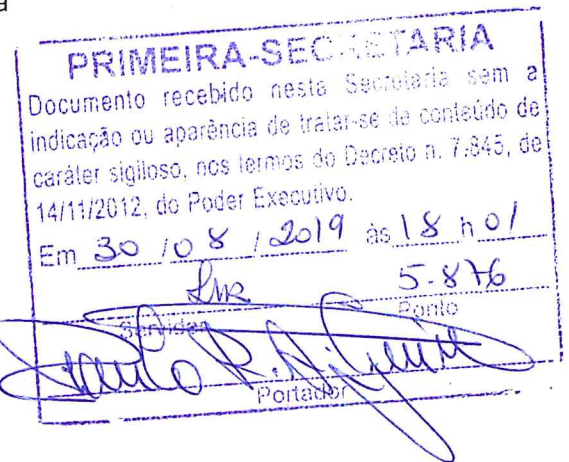 a
PRIMEIRA-SECRETARIA
Documento recebido nesta Secretaria sem a
indicação ou aparência de tratar-se de conteúdo de
caráter sigiloso, nos termos do Decreto n. 7.845, de
14/11/2012, do Poder Executivo.
Em 30 / 08 / 2019 às 18 h 01
5-876
Servidor Ponto
Portador